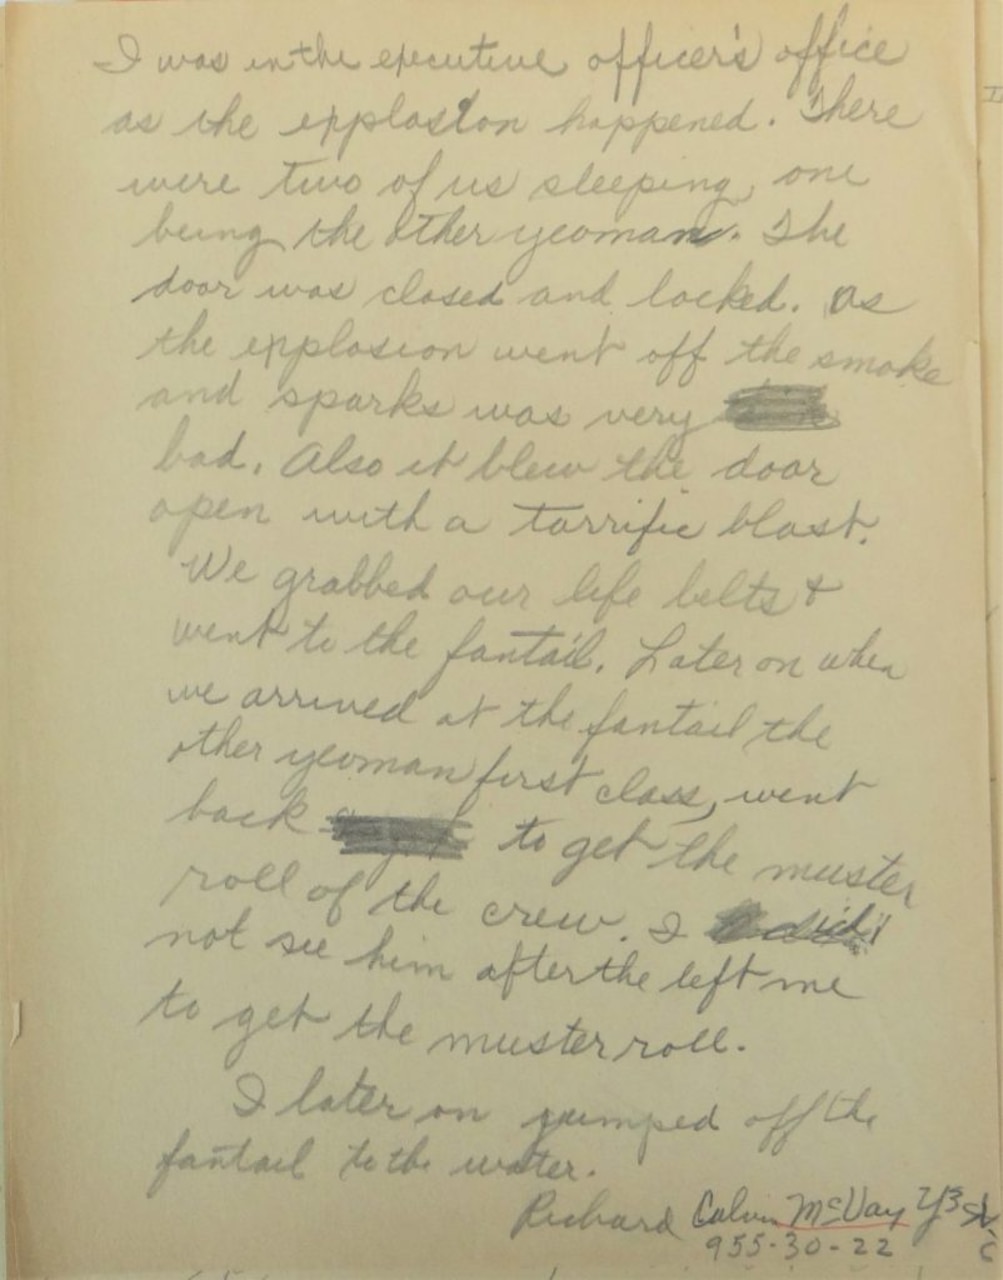 I was in the executive officer's office
as the explosion happened. There
were two of us sleeping, one
being the other yeoman. The
door was closed and locked. As
the explosion went off the smoke
and sparks was very
bad. Also it blew the door
open with a tarrific blast.
We grabbed our life belts &
went to the fantail. Later on when
we arrived at the fantail the
other yeoman first class, went
back to get the muster
roll of the crew. I did
not see him after the left me
to get the muster roll.
I later on jumped off the
fantail to the water.
Richard Calvin McVay Y3
955-30-22